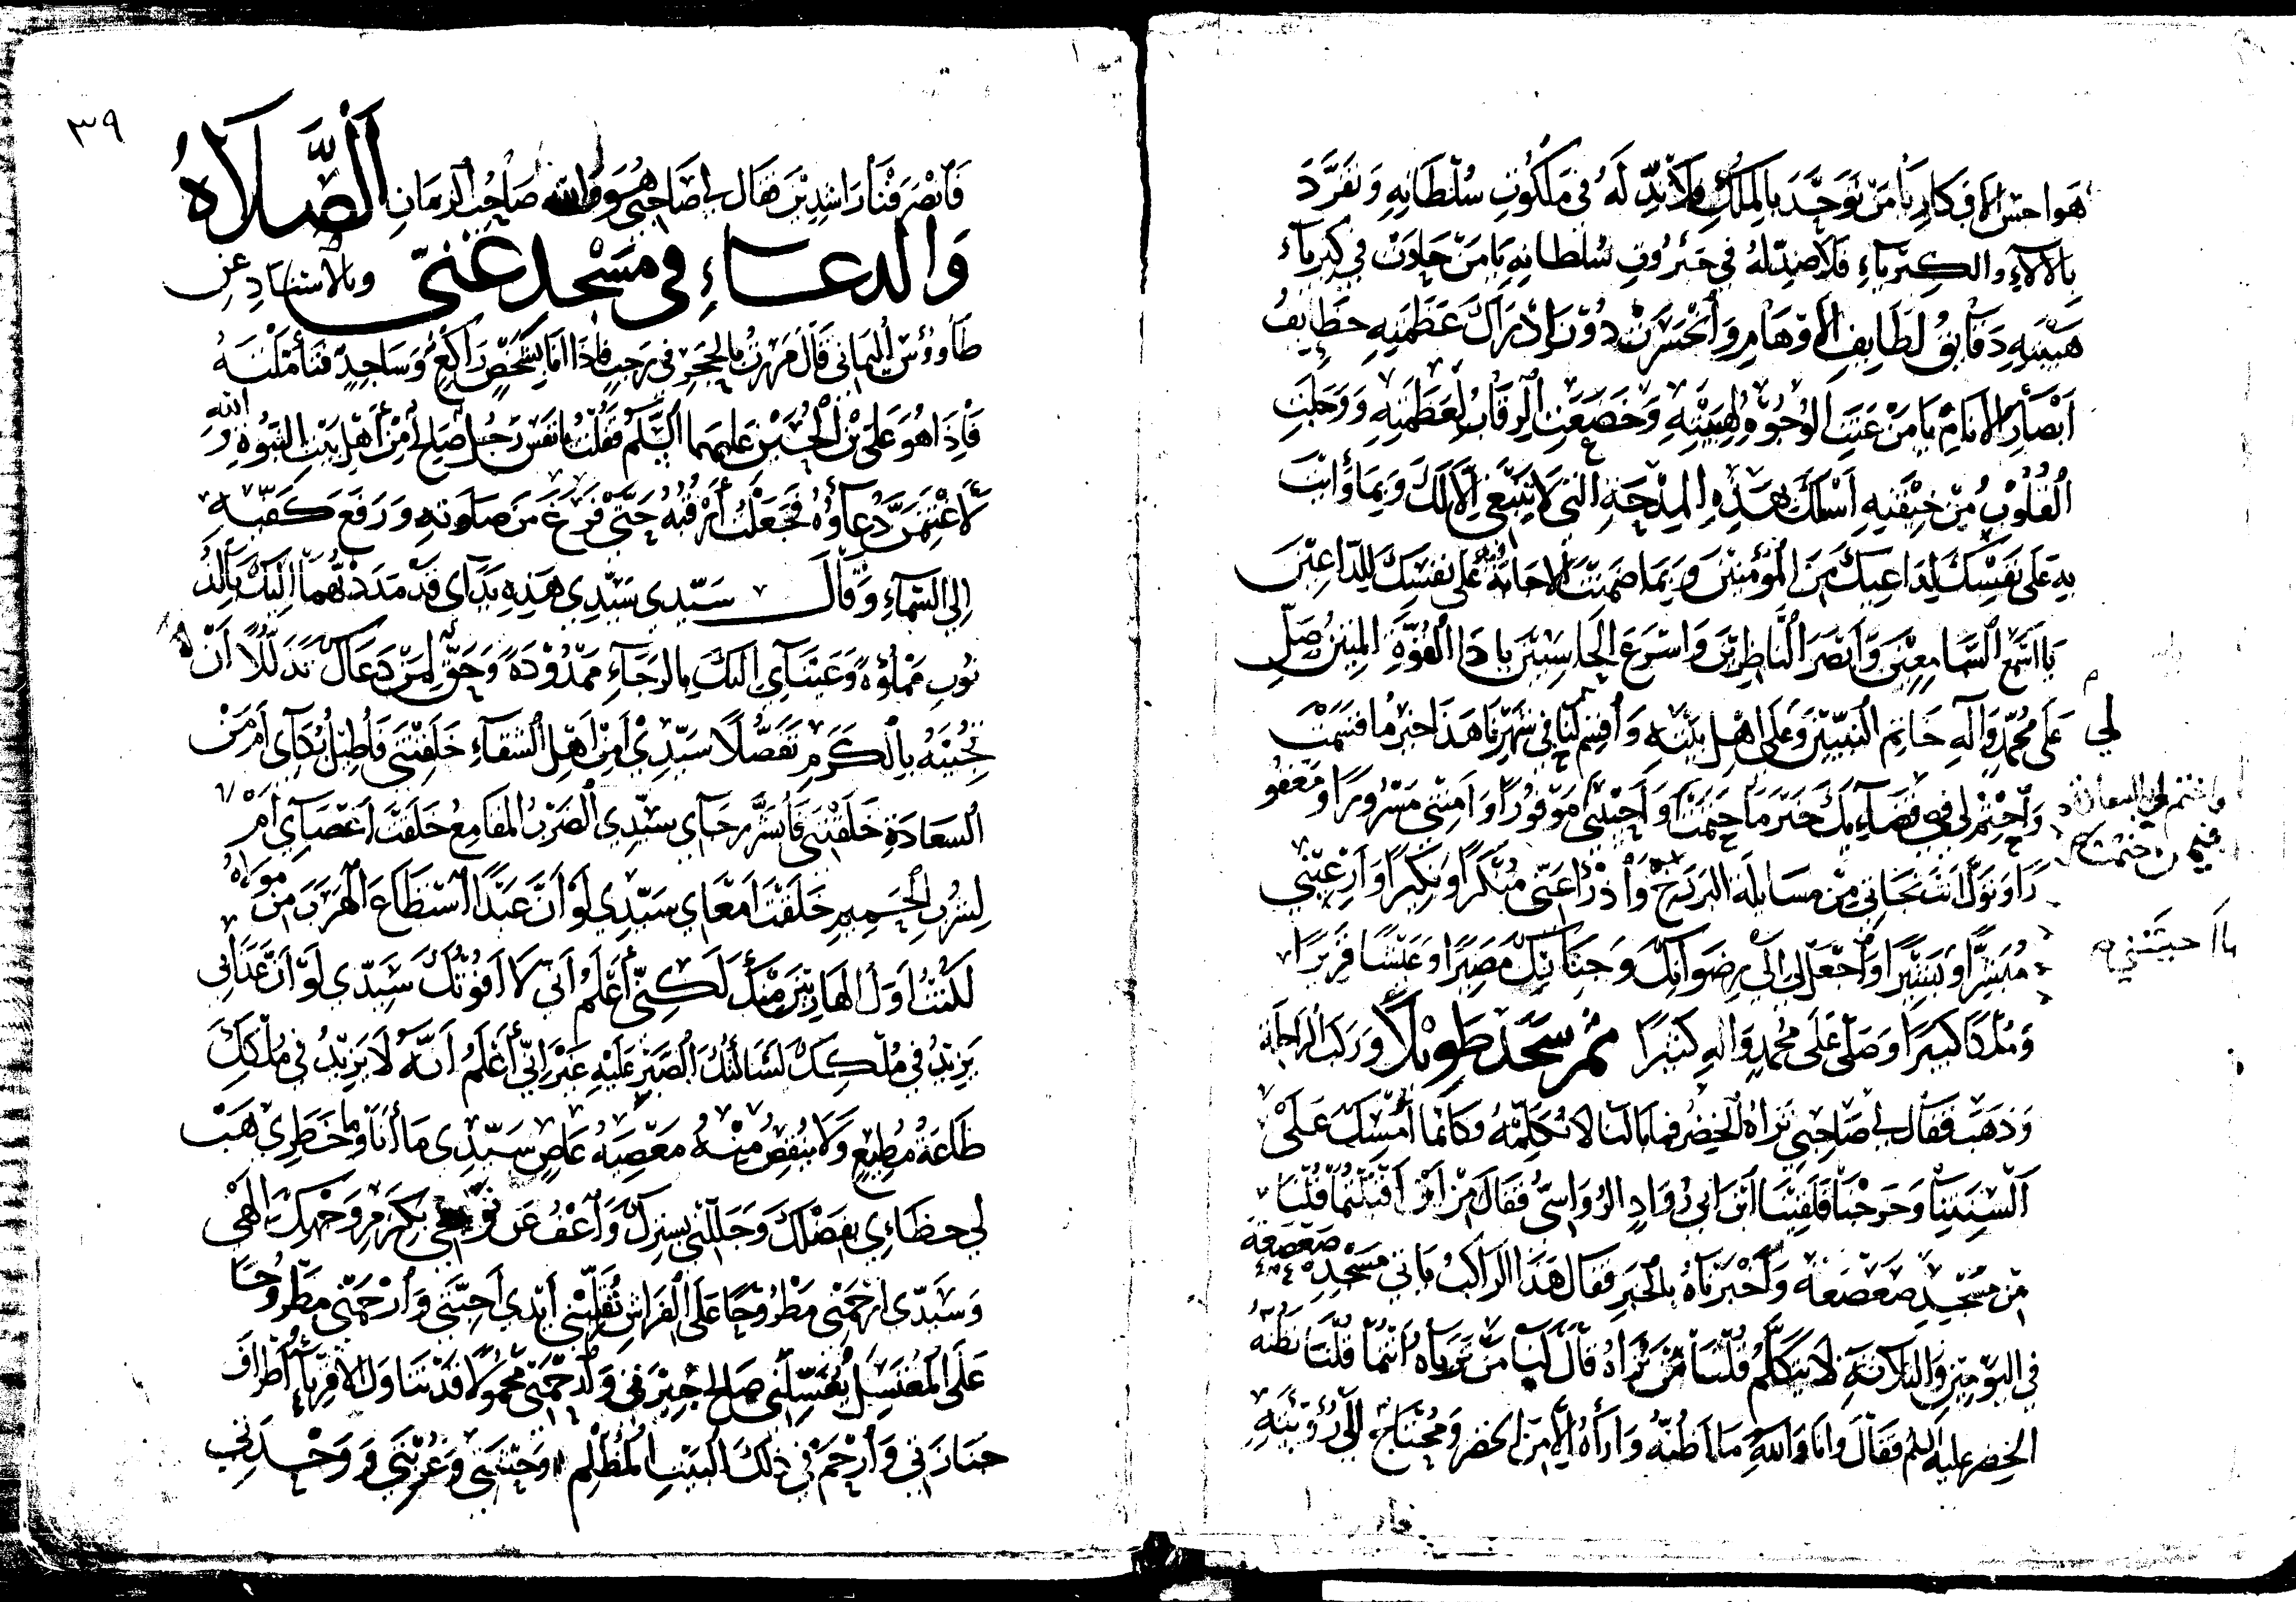 هواجس الأفكار يا من توحد بالملك فلا ند له في ملكوت سلطانه وتفرد
بالآلاء والكبرياء فلا ضد له في جبروت سلطانه يا من حارت في كبرياء
هيبته دقائق لطايف الأوهام وانحسرت دون إدراك عظمته خطايف
أبصار الأنام يا من عنت الوجوه لهيبته وخضعت الرقاب لعظمته ووجلت
القلوب من خيفته أسلك بهذه المدحة التي لا تنبغي إلا لك وبما وأيت
به على نفسك لداعيك من المؤمنين وبما ضمنت الإجابة فيه على نفسك للداعين
يا أسمع السامعين وأبصر الناظرين وأسرع الحاسبين يا ذا القوة المتين صل
على محمد وآله خاتم النبيين وعلى أهل بيته وأقسم لنا في شهرنا هذا خير ما قسمت
لي
وأختم لي في قضائك خير ما حتمت وأحيني موفورا وأمتني مسرورا ومغفو
واختم لي بالسعادة
فيمن ختمت
را وتول أنت نجاتي من مسايلة البرزخ وأدرأ عني منكرا ونكيرا وأر عيني
ما احييتني
مبشرا وبشيرا وأجعل لي إلى رضوانك وجنانك مصيرا وعيشا قريرا
وملكا كبيرا وصلى على محمد واله كثيرا ثم سجد طويلا وركب الراحلة
وذهب فقال لي صاحبي نراه الخضر فما بالنا لا نكلمه فكانما أمسك على
ألسنتنا وخرجنا فلقينا ابن ابي رواد الرواسي فقال من أين أقبلتما قلنا
من مسجد صعصعة وأخبرناه بالخبر فقال هذا الراكب ياتي مسجد صعصعة
في اليومين والثلاثة لا يتكلم قلنا من نراه قال لنا من تريانه أنتما قلنا نظنه
الخضر عليه السلم فقال وانا والله ما أظنه وأراه إلا من الخضر ومحتاج إلى رؤيته
٣٩
فأنصرفنا راشدين فقال لي صاحبي هو والله صاحب الزمان الصلاة
والدعاء في مسجد غني وبالاسناد عن
طاووس اليماني قال مررت بالحجر في رجب فاذا أنا بشخص راكع وساجد فتأملته
فاذا هو علي بن الحسين عليهما السلم فقلت يا نفس رجل صالح من أهل بيت النبوة والله
لأغتنمن دعاؤه فجعلت أرقبه حتى فرغ من صلوته ورفع كفيه
إلى السماء وقال سيدي سيدي هذه يداي قد مددتهما إليك بالذ
نوب مملوة وعيناي إليك بالرجاء ممدودة وحق لمن دعاك تذللا أن
تجيبه بالكرم تفضلا سيدي أمن أهل الشقاء خلقتني فأطيل بكاي أم من
السعادة خلقتني فأبشر رجاي سيدي ألضرب المقامع خلقت أعضاي أم
لشرب الحميم خلقت أمعاي سيدي لو أن عبدا استطاع الهرب من مولاه
لكنت أول الهاربين منك لكني أعلم أني لا أفوتك سيدي لو أن عذابي
يزيد في ملكك لسالتك الصبر عليه غير اني أعلم انه لا يزيد في ملكك
طاعة مطيع ولا ينقص منه معصيه عاص سيدي ما أنا وما خطري هب
لي خطاءي بفضلك وجللني بسترك وأعف عن توبيخي بكرم وجهك الهي
وسيدي ارحمني مطروحا على الفراش تقلبني أيدي أحبتي وأرحمني مطروحا
على المغتسل يغسلني صالح جيرتي وأرحمني محمولا قد تناول الاقرباء أطراف
جنازتي وأرحم في ذلك البيت المظلم وحشتي وغربتي ووحدتي